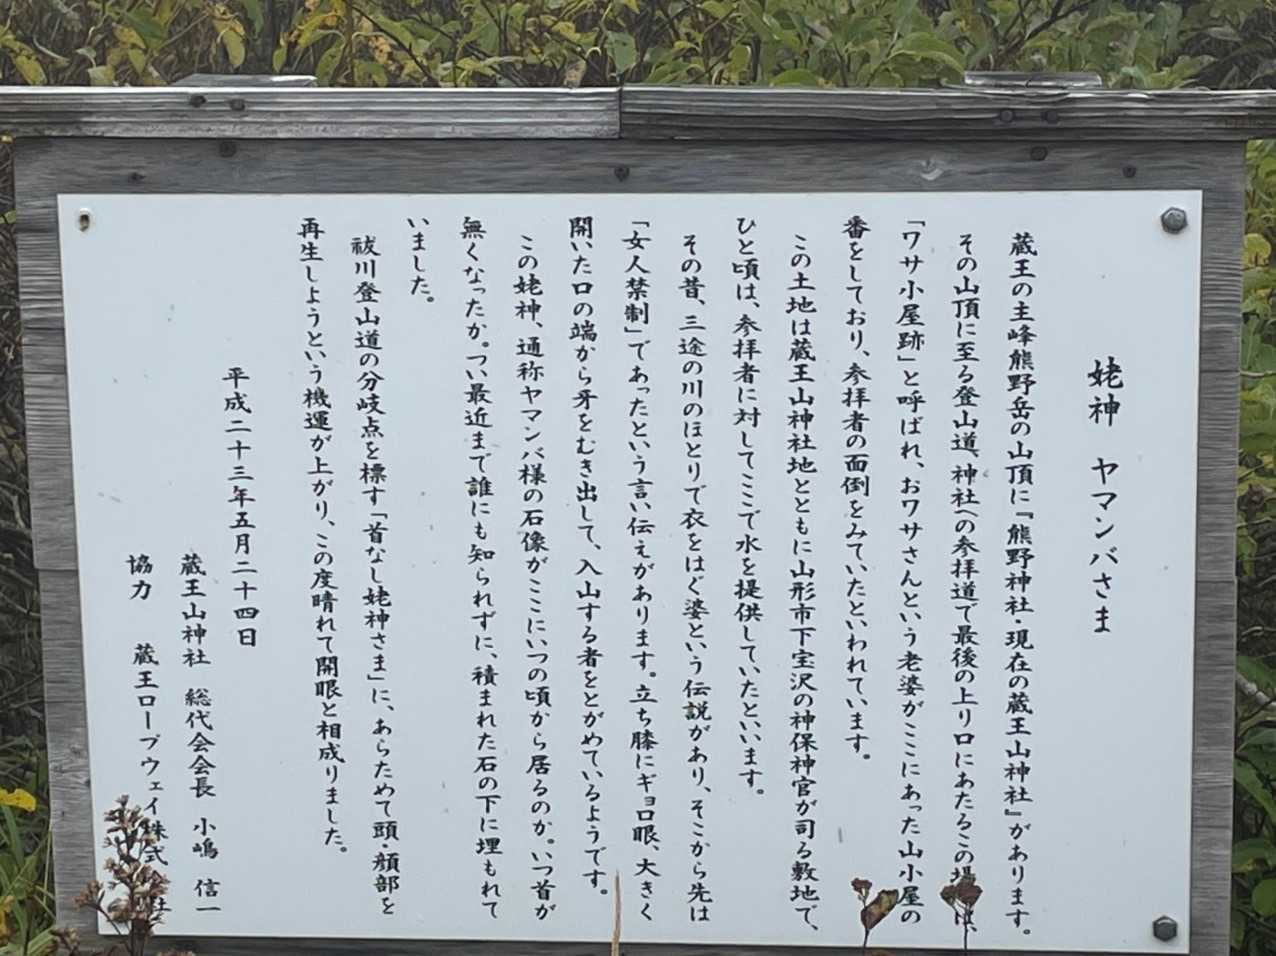 姥神 ヤマンバさま
蔵王の主峰熊野岳の山頂に『熊野神社・現在の蔵王山神社』があります。
その山頂に至る登山道、神社への参拝道で最後の上り口にあたるこの場は、
「ワサ小屋跡」と呼ばれ、おワサさんという老婆がここにあった山小屋の
番をしており、参拝者の面倒をみていたといわれています。
この土地は蔵王山神社地とともに山形市下宝沢の神保神官が司る敷地で、
ひと頃は、参拝者に対してここで水を提供していたといいます。
その昔、三途の川のほとりで衣をはぐ婆という伝説があり、そこから先は
「女人禁制」であったという言い伝えがあります。立ち膝にギョロ眼、大きく
開いた口の端から牙をむき出して、入山する者をとがめているようです。
この姥神、通称ヤマンバ様の石像がここにいつの頃から居るのか。いつ首が
無くなったか。つい最近まで誰にも知られずに、積まれた石の下に埋もれて
いました。
祓川登山道の分岐点を標す「首なし姥神さま」に、あらためて頭・顔部を
再生しようという機運が上がり、この度晴れて開眼と相成りました。
平成二十三年五月二十四日
蔵王山神社 総代会会長 小嶋 信一
協力 蔵王ロープウェイ株式会社